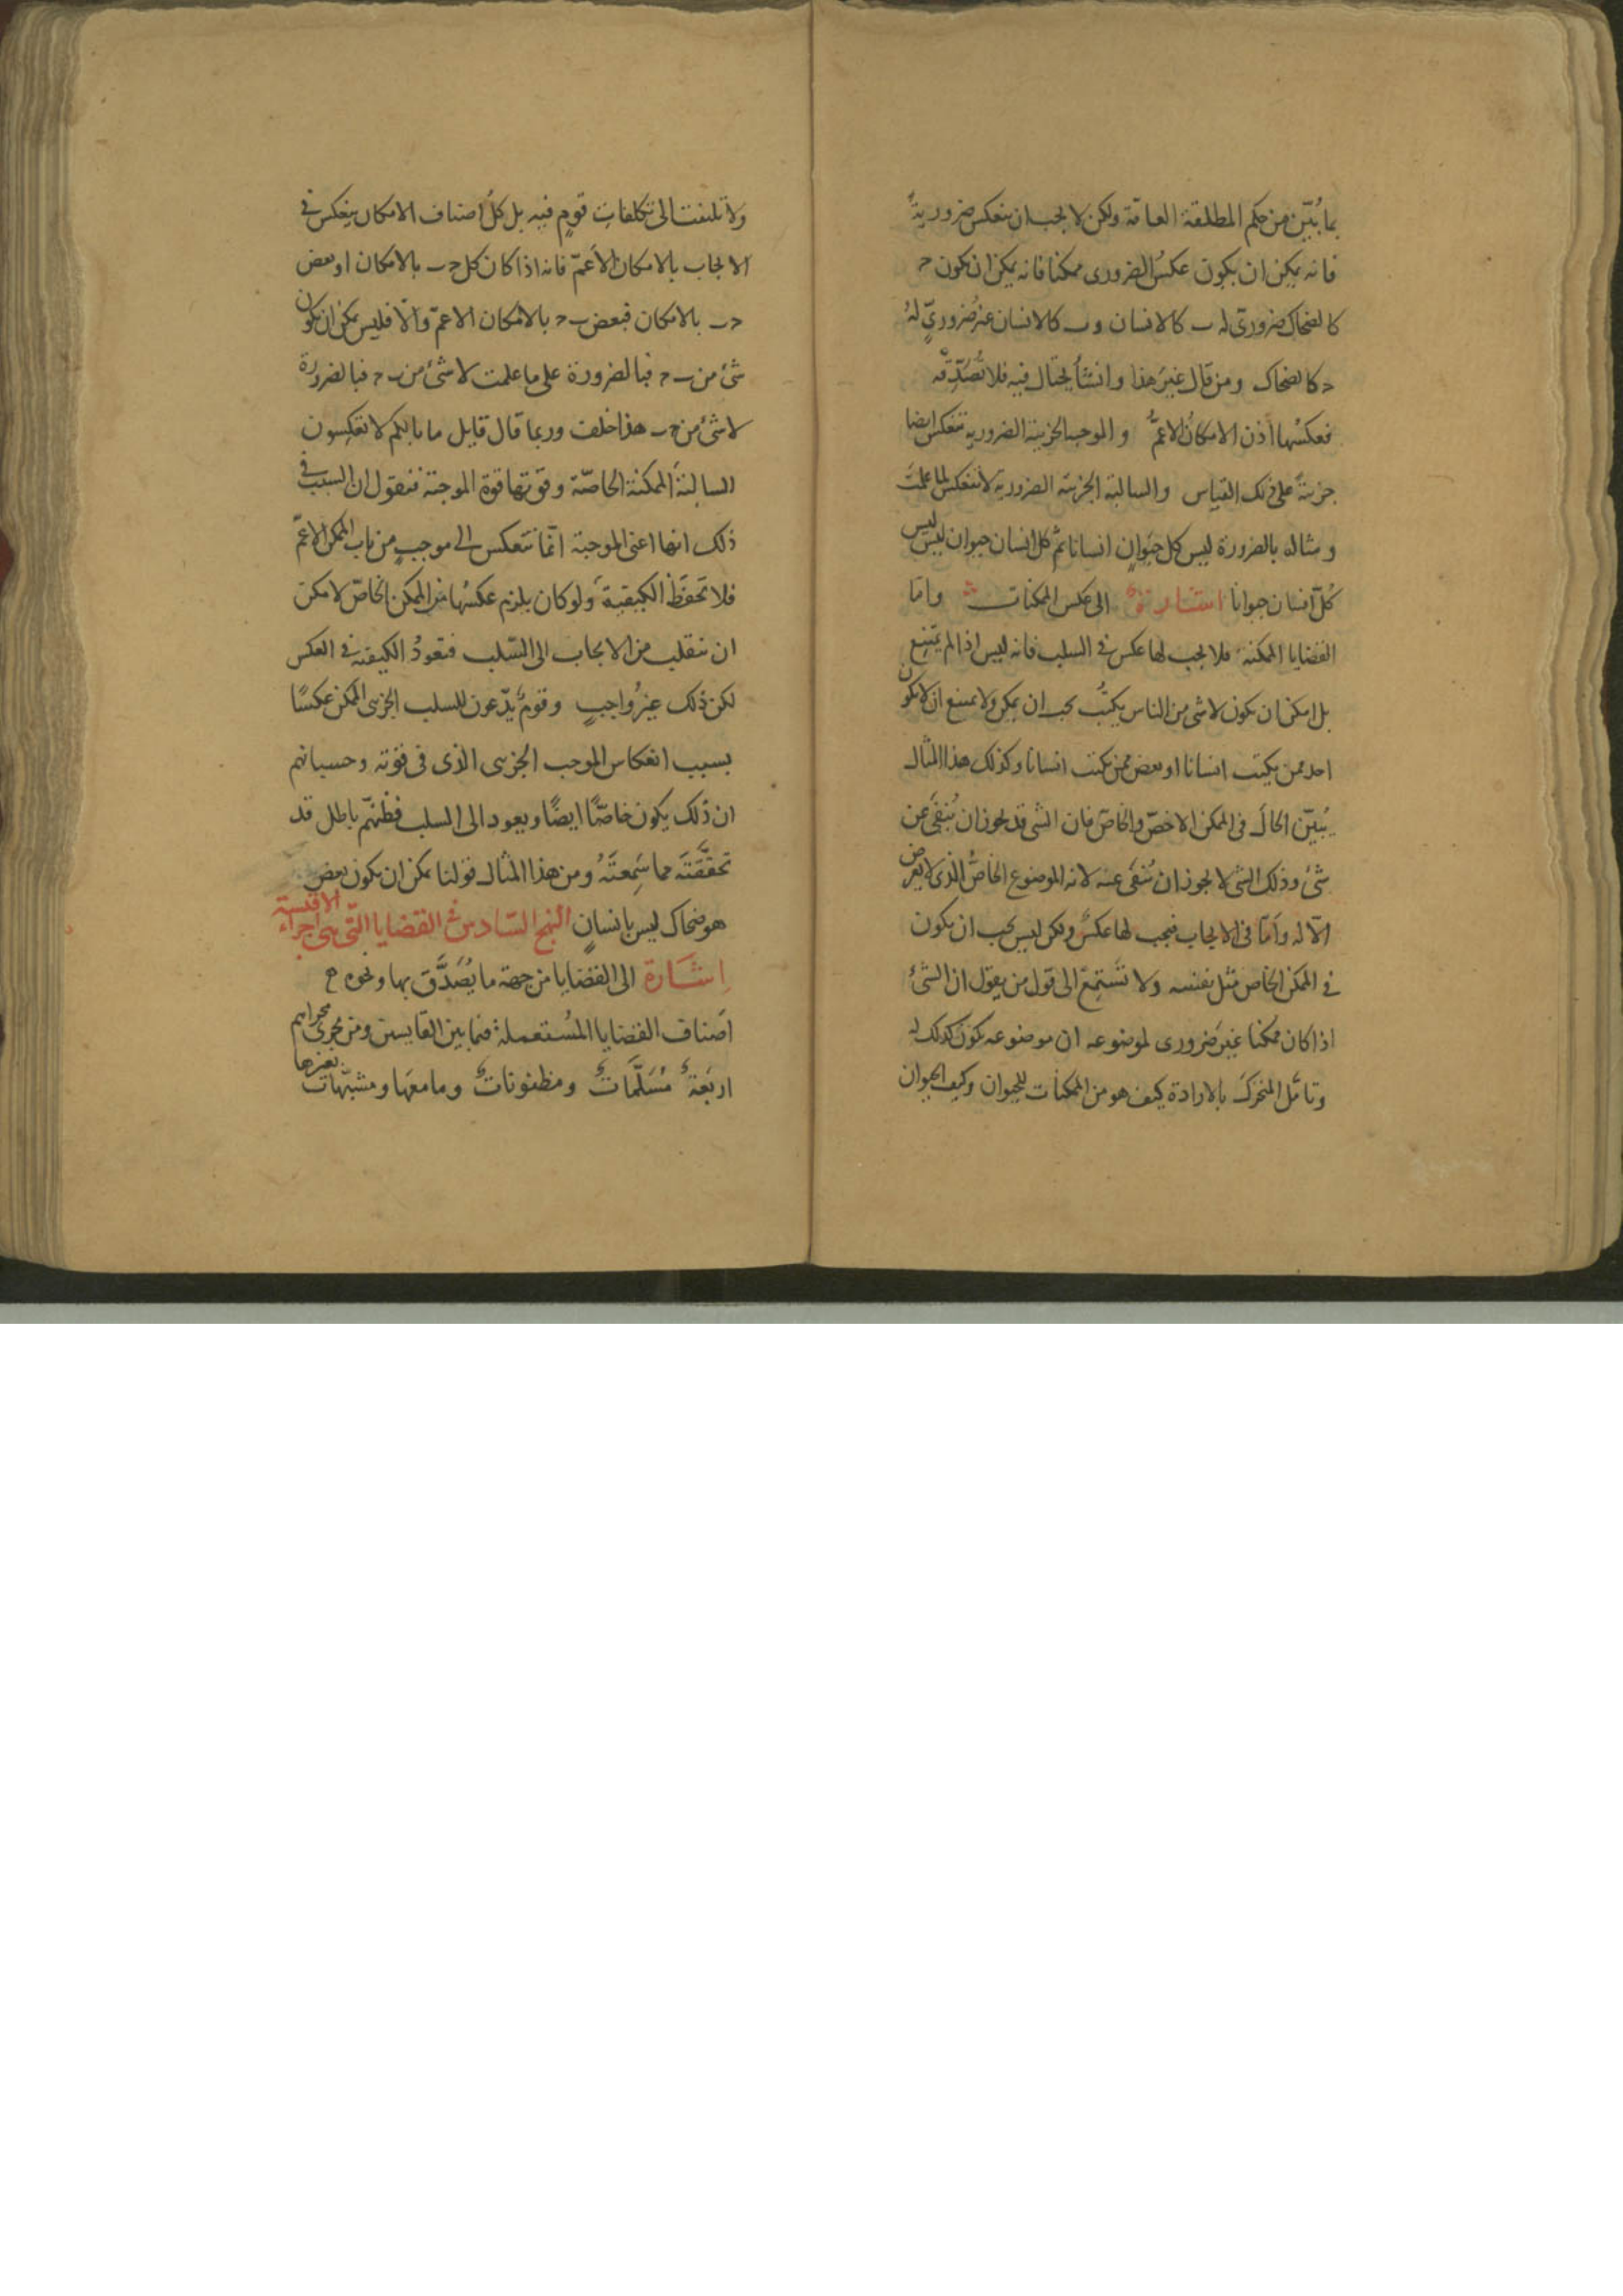 بما بُيّن من حكم المطلقة العامّة ولكن لا يجب ان ينعكس ضروريةً
فانه يمكن ان يكون عكسُ الضرورى ممكنا فانه يمكن ان يكون ج
كالضحاك ضروريّ له ب كالانسان و ب كالانسان غيرُ ضروريٍّ لهُ
ج كالضحاك ومن قال غيرَ هذا وانشأ يحتال فيه فلا تُصَدِّقْه
فعكسُها اذن الامكانُ الاعمُّ والموجبه الجزييه الضروريه تنعكس ايضا
جزييةً على ذلك القياس والسالبة الجزئية الضرورية لا تنعكس لما علمتَ
ومثاله بالضرورة ليس كل حيَوانٍ انسانا ثم كل انسان حيوان ليس ليس
كُلّ انسان حيوانا اشارةٌ الى عكس الممكنات واما
القضايا الممكنة فلا يجب لها عكس فى السلب فانه ليس اذا لم يمتنِع
بل امكن ان يكون لا شى من الناس يكتُب يجب ان يمكن ولا يمتنع ان لا يكون
احد ممن يكتب انسانا او بعض ممن يكتب انسانا وكذلك هذا المثال
يُبيّن الحالَ فى الممكن الاخصّ والخاصّ فان الشى قد يجوز ان يُنفَى عن
شئ وذلك الشى لا يجوز ان يُنفَى عنه لانه الموضوع الخاصُّ الذى لا يعرض
الّا له وامّا فى الايجاب فيجب لها عكسٌ ولكن ليس يجب ان يكون
فى الممكن الخاص مثل نفسه ولا تَستمِعْ الى قول من يقول ان الشئ
اذا كان ممكنا غيرَ ضرورى لموضوعه ان موضوعه يكون كذلك له
وتامّل المتحركَ بالارادة كيف هو من الممكنات للحيوان وكيف الحيوان
ولا تلتفت الى تكلفاتِ قومٍ فيه بل كلُ اصناف الامكان ينعكس فى
الايجاب بالامكان الاعمّ فانه اذا كان كل ج ب بالامكان او بعض
ج ب بالامكان فبعض ب ج بالامكان الاعمّ والّا فليس يمكن ان يكون
شئ من ب ج فبالضرورة على ما علمت لا شئ من ب ج فبالضرورة
لا شئ من ج ب هذا خلف وربما قال قايل ما بالكم لا تعكِسون
السالبةَ الممكنة الخاصّة وقوتها قوة الموجبة فنقول ان السبب فى
ذلك انها اعنى الموجبة انّما تنعكس الى موجبٍ من باب الممكن الاعمّ
فلا تحفظ الكيفية ولو كان يلزم عكسُها من الممكن الخاصّ لامكن
ان تنقلب من الايجاب الى السّلب فتعودُ الكيفية فى العكس
لكن ذلك غيرُ واجبٍ وقومٌ يدّعون للسلب الجزيى الممكن عكسًا
بسبب انعكاس الموجب الجزيى الذى فى قوّته وحسبانهم
ان ذلك يكون خاصًّا ايضًا ويعود الى السلب فظنّهم باطل قد
تحقّقتَه مما سَمِعتَهُ ومن هذا المثال قولنا يمكن ان يكون بعض
هو ضحاك ليس بانسانٍ النهج السّادس فى القضايا الّتى هى اجزاء الاقيسة
اِشَارة الى القضايا من جهة ما يُصَدَّق بها ونحوه
اَصناف القضايا المُستعملة فيما بين القايسين ومن يجرى مجراهم
اربَعةٌ مُسَلَّماتٌ ومظنوناتٌ وما معَها ومشبّهات بغيرها